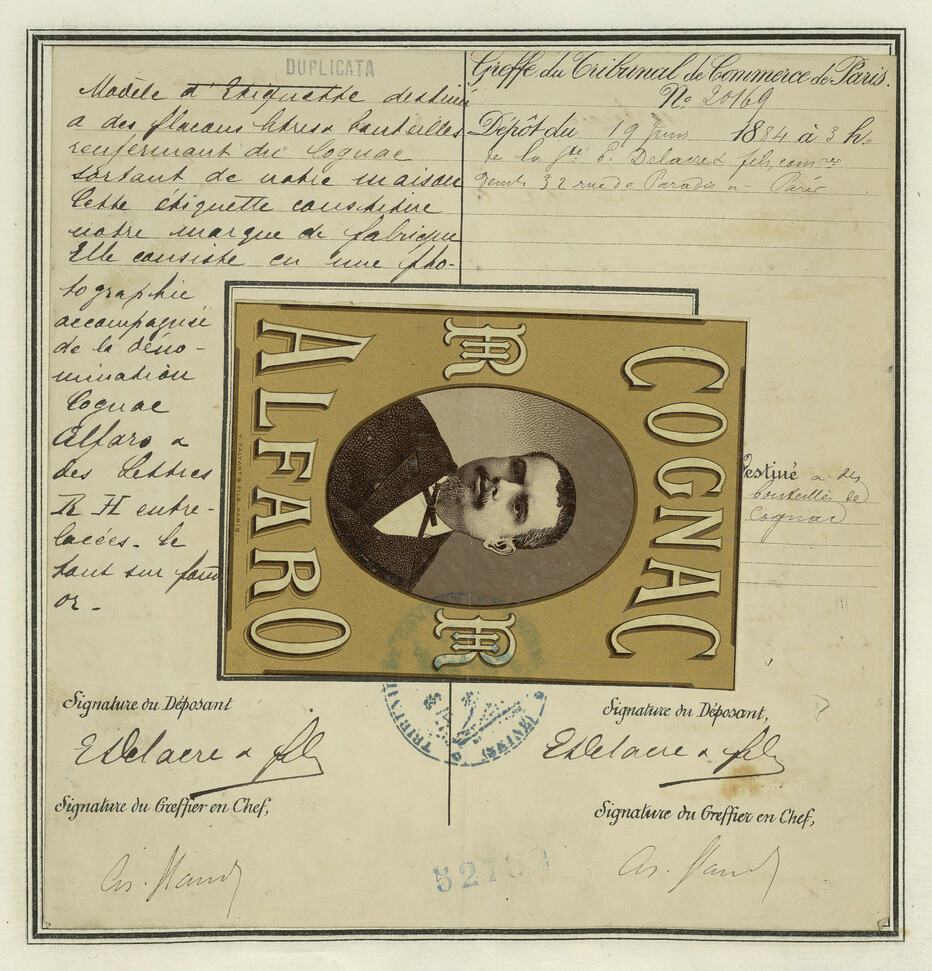 DUPLICATA
Modèle d'Etiquette destiné
a des flacons litres & bouteilles
renfermant du Cognac
sortant de notre maison
Cette étiquette constitue
notre marque de fabrique
Elle consiste en une pho-
tographie
accompagnée
de la déno-
mination
Cognac
Alfaro &
des lettres
R H entre-
lacées. Le
tout sur fond
or -
Greffe du Tribunal de Commerce de Paris.
No 20169
Dépôt du 19 Juin 1884 à 3 h.
de la Sté E. Delacre & fils, com
32 rue de Paradis a Paris
ALFARO
COGNAC
RH
RH
V. PALYART & FILS. PARIS
Destiné a des
bouteilles de
Cognac
Signature du Déposant
E Delacre & fils
Signature du Greffier en Chef,
Signature du Déposant,
E Delacre & fils
Signature du Greffier en Chef,